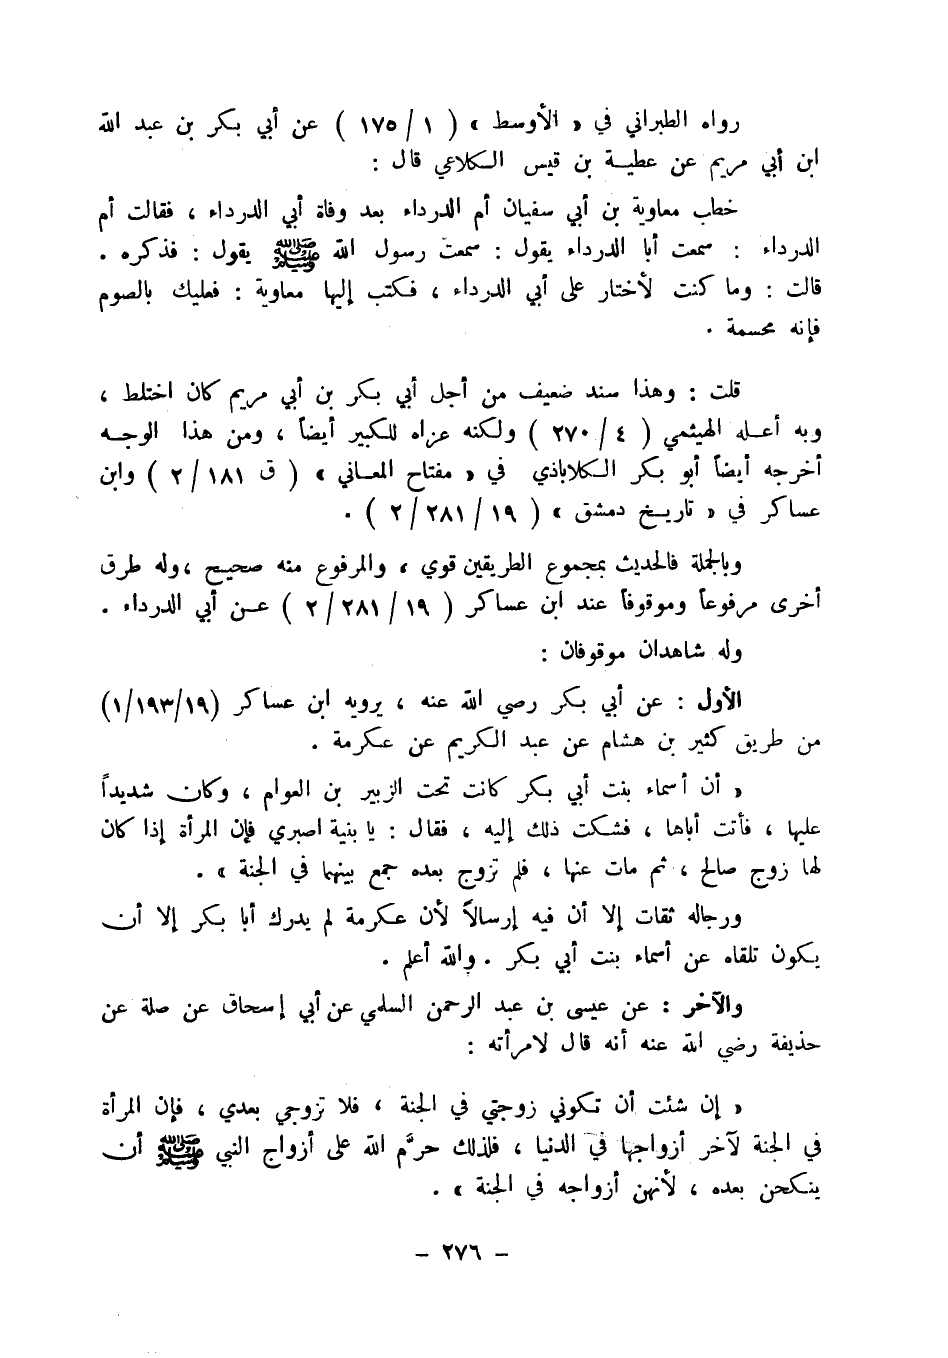 رواه الطبراني في « الأوسط » ( ١ / ١٧٥ ) عن أبي بكر بن عبد الله
ابن أبي مريم عن عطية بن قيس الكلاعي قال :
خطب معاوية بن أبي سفيان أم الدرداء بعد وفاة أبي الدرداء ، فقالت أم
الدرداء : سمعت أبا الدرداء يقول : سمعت رسول الله ﷺ يقول : فذكره .
قالت : وما كنت لأختار على أبي الدرداء ، فكتب إليها معاوية : فعليك بالصوم
فإنه محسمة .
قلت : وهذا سند ضعيف من أجل أبي بكر بن أبي مريم كان اختلط ،
وبه أعله الهيثمي ( ٤ / ٢٧٠ ) ولكنه عزاه للكبير أيضاً ، ومن هذا الوجه
أخرجه أيضاً أبو بكر الكلاباذي في « مفتاح المعاني » ( ق ١٨١ / ٢ ) وابن
عساكر في « تاريخ دمشق » ( ١٩ / ٢٨١ / ٢ ) .
وبالجملة فالحديث بمجموع الطريقين قوي ، والمرفوع منه صحيح ، وله طرق
أخرى مرفوعاً وموقوفاً عند ابن عساكر ( ١٩ / ٢٨١ / ٢ ) عن أبي الدرداء .
وله شاهدان موقوفان :
الأول : عن أبي بكر رضي الله عنه ، يرويه ابن عساكر (١٩/١٩٣/١)
من طريق كثير بن هشام عن عبد الكريم عن عكرمة .
« أن أسماء بنت أبي بكر كانت تحت الزبير بن العوام ، وكان شديداً
عليها ، فأتت أباها ، فشكت ذلك إليه ، فقال : يا بنية اصبري فإن المرأة إذا كان
لها زوج صالح ، ثم مات عنها ، فلم تزوج بعده جمع بينهما في الجنة » .
ورجاله ثقات إلا أن فيه إرسالاً لأن عكرمة لم يدرك أبا بكر إلا أن
يكون تلقاه عن أسماء بنت أبي بكر . والله أعلم .
والآخر : عن عيسى بن عبد الرحمن السلمي عن أبي إسحاق عن صلة عن
حذيفة رضي الله عنه أنه قال لامرأته :
« إن شئت أن تكوني زوجتي في الجنة ، فلا تزوجي بعدي ، فإن المرأة
في الجنة لآخر أزواجها في الدنيا ، فلذلك حرَّم الله على أزواج النبي ﷺ أن
ينكحن بعده ، لأنهن أزواجه في الجنة » .
– ٢٧٦ –